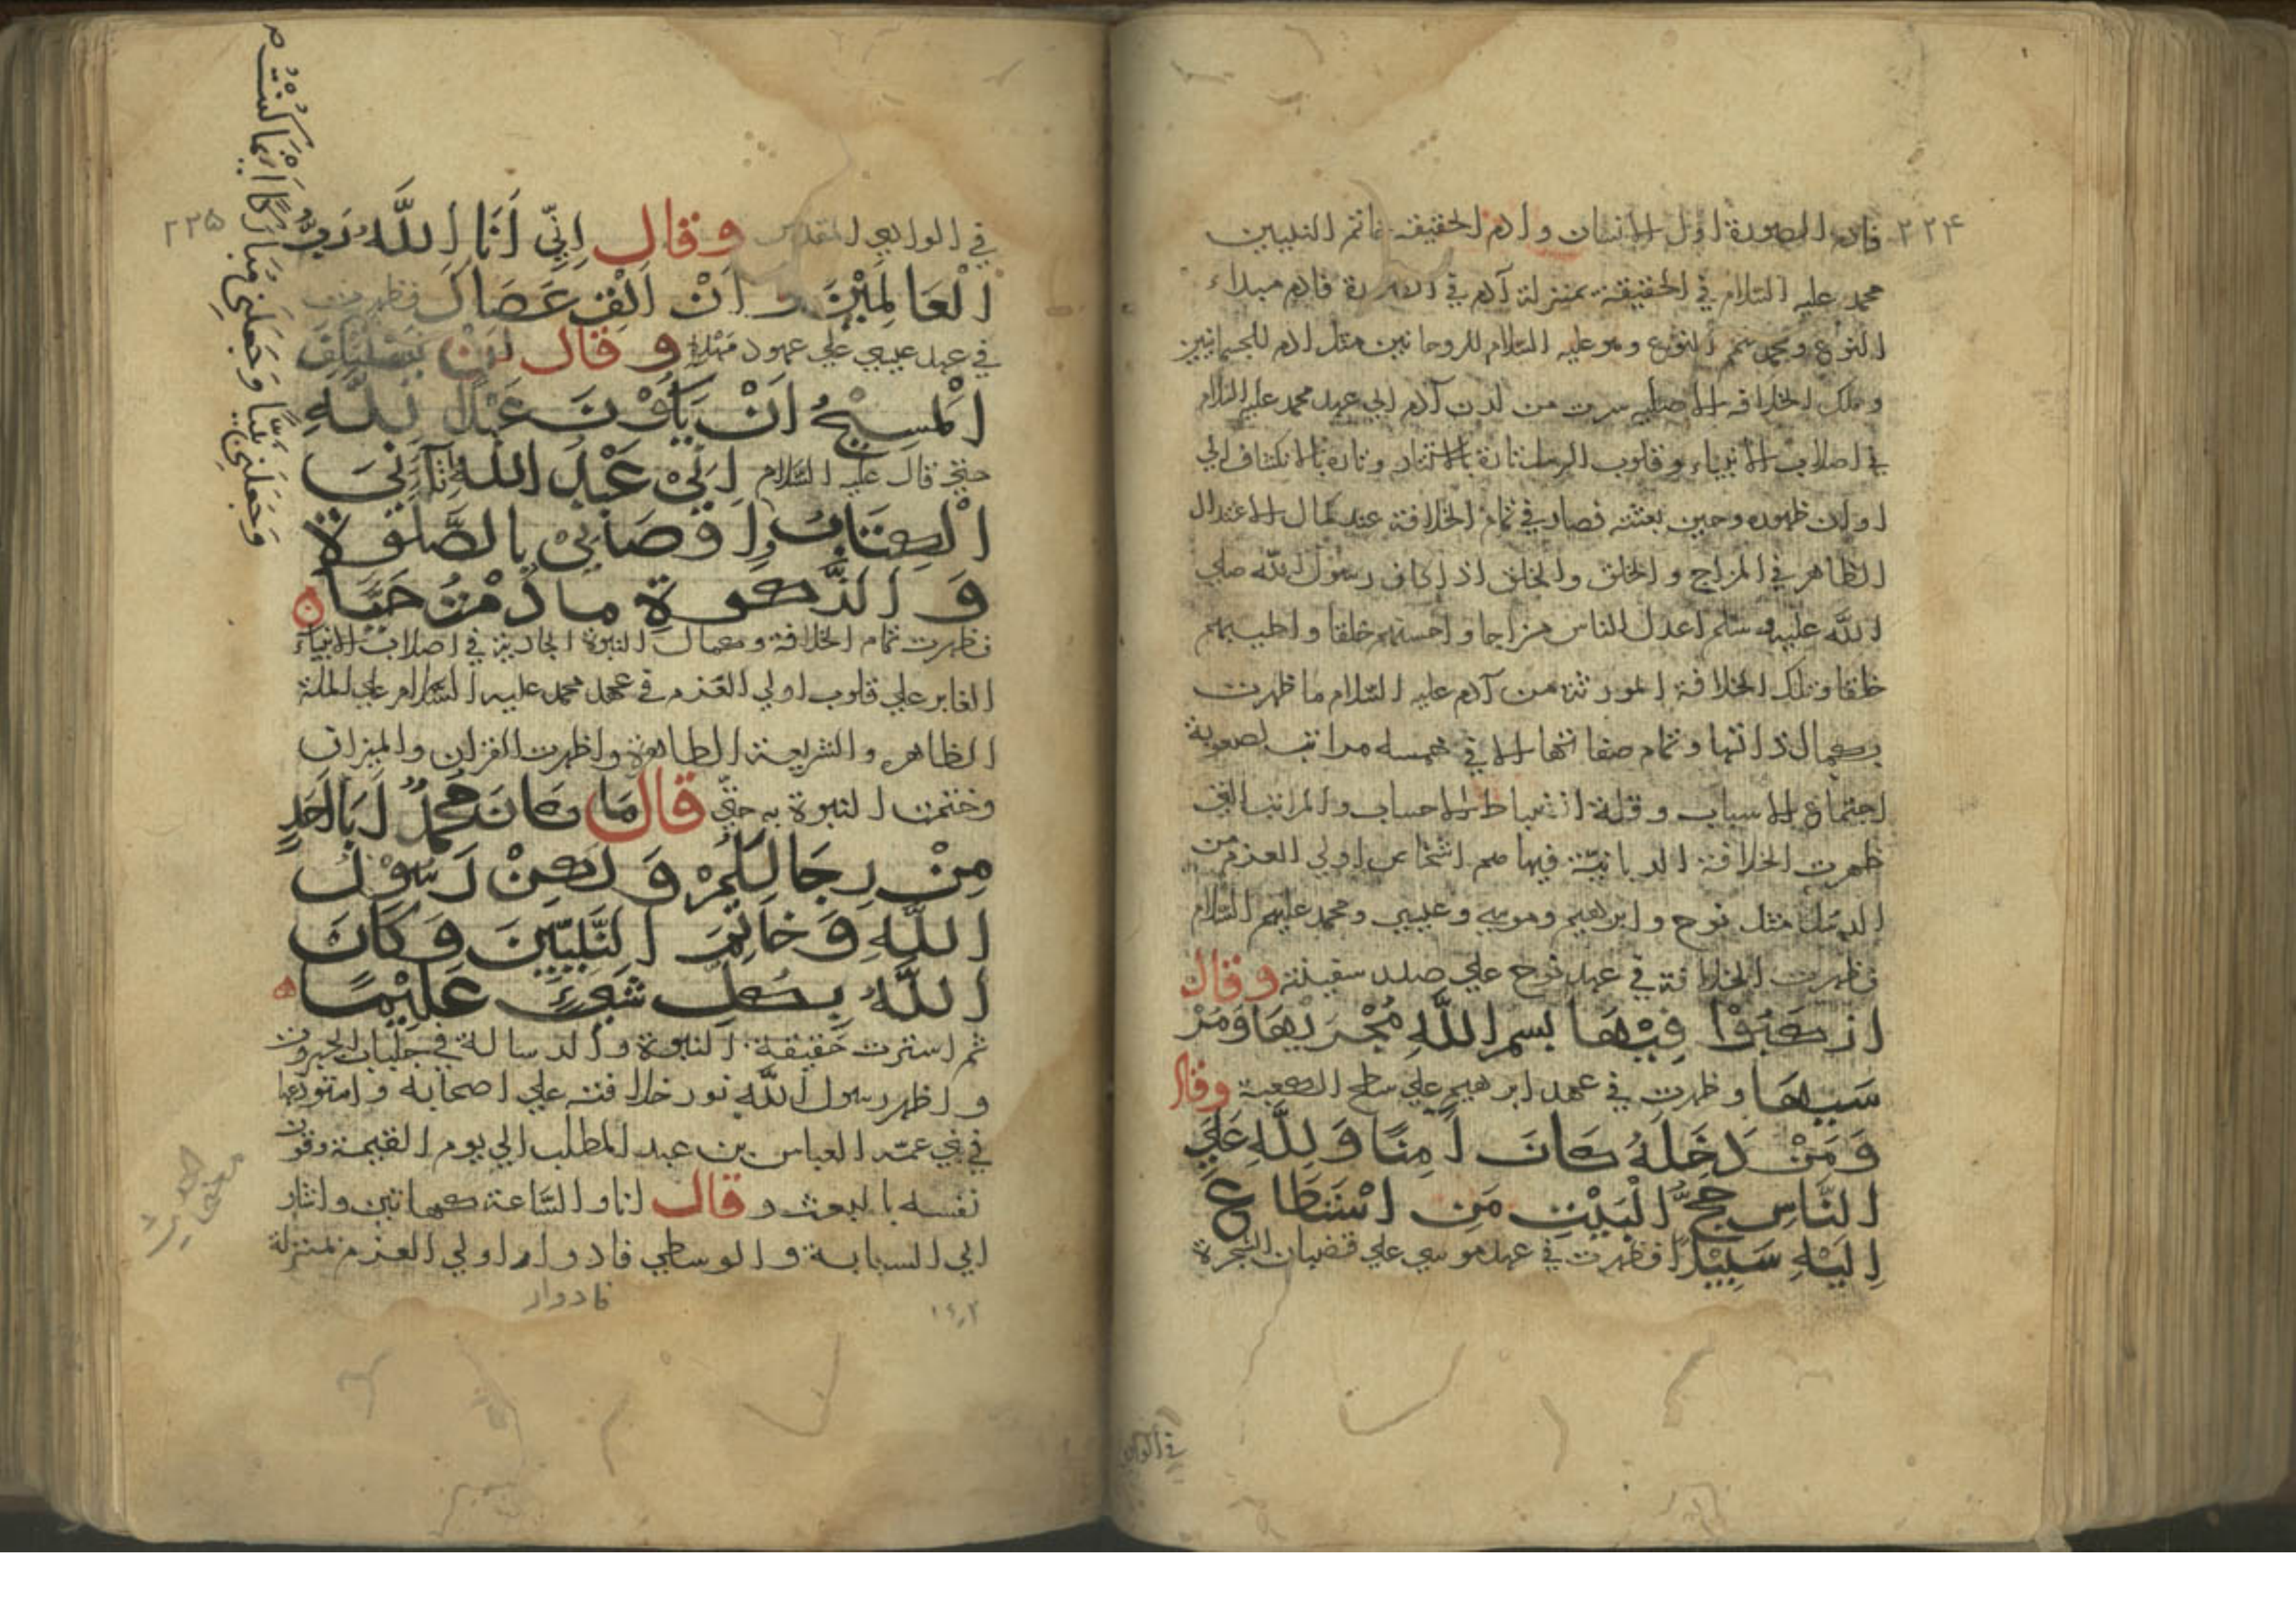 ٢٢۴
فادم الصورة اول الانسان وادم الحقيقه خاتم النبيين
محمد عليه السلام في الحقيقة بمنزلة آدم في فادم مبداء
النوع ومحمد النوع وهو عليه السلام للروحانيين مثل ادم للجسمانيين
وتلك الخلافه الاصليه سرت من لدن آدم الي عهد محمد عليه السلام
في اصلاب الانبياء وقلوب الرسل تارة بالاستتار وتارة بالانكشاف الي
اوان ظهوره وحين بعثته فصار في تمام الخلافة عند كمال الاعتدال
الظاهر في المزاج والخلق والخلق اذ كان رسول الله صلي
الله عليه وسلم اعدل الناس مزاجا واحسنهم خلقا واطيبهم
خلقا وتلك الخلافة المورثة من آدم عليه السلام ما ظهرت
بكمال ذاتها وتمام صفاتها الا في خمسه مراتب لصعوبة
اجتماع الاسباب وقلة انضباط الاحساب والمراتب التي
ظهرت الخلافة الربانية فيها هم اشخاص اولي العزم من
الرسل مثل نوح وابرهيم وموسي وعيسي ومحمد عليهم السلام
فظهرت الخلافة في عهد نوح علي سفينته وقال
اركبوا فيها بسم الله مجريها ومر
سيها وظهرت في عهد ابرهيم علي سطح الكعبة وقال
وَمَنْ دَخَلَهُ كَانَ اٰمِنًا وَلِلّٰهِ عَلَي
النَّاسِ حِجُّ الْبَيْتِ مَنِ اسْتَطَاعَ
اِلَيْهِ سَبِيْلًا فظهرت في عهد موسي علي قضبان الشجرة
في الوادي
٢٢۵
في الوادي المقدس وقال اِنِّي اَنَا اللّٰهُ رَبُّ
الْعَالَمِيْنَ وَاَنْ اَلْقِ عَصَاكَ فظهرت
في عهد عيسي علي عمود مهده وقال لَنْ يَسْتَنْكِفَ
الْمَسِيْحُ اَنْ يَكُوْنَ عَبْدًا لِلّٰهِ
حتي قال عليه السلام اِنِّيْ عَبْدُ اللّٰهِ اٰتَانِيَ
الْكِتَابَ وَاَوْصَانِيْ بِالصَّلٰوةِ
وَالزَّكٰوةِ مَا دُمْتُ حَيًّا
وَجَعَلَنِيْ نَبِيًّا وَجَعَلَنِيْ مُبَارَكًا اَيْنَمَا كُنْتُ صح
فظهرت تمام الخلافة وكمال النبوة الجارية في اصلاب الانبياء
الغابر علي قلوب اولي العزم في عهد محمد عليه السلام علي الملة
الظاهر والشريعة الطاهرة واظهرت القران والميزان
وختمت النبوة به حتي قال مَا كَانَ مُحَمَّدٌ اَبَا اَحَدٍ
مِنْ رِجَالِكُمْ وَلٰكِنْ رَسُوْلَ
اللّٰهِ وَخَاتِمَ النَّبِيّٖيْنَ وَكَانَ
اللّٰهُ بِكُلِّ شَيْءٍ عَلِيْمًا
ثم استترت حقيقة النبوة والرسالة في جلباب الجبروت
واظهر رسول الله نور خلافته علي اصحابه واستودعها
في بني عمه العباس بن عبد المطلب الي يوم القيمة وقرن
نفسه بالبعث وقال انا والساعة كهاتين واشار
الي السبابة والوسطي فادوار اولي العزم بمنزلة
فادوار